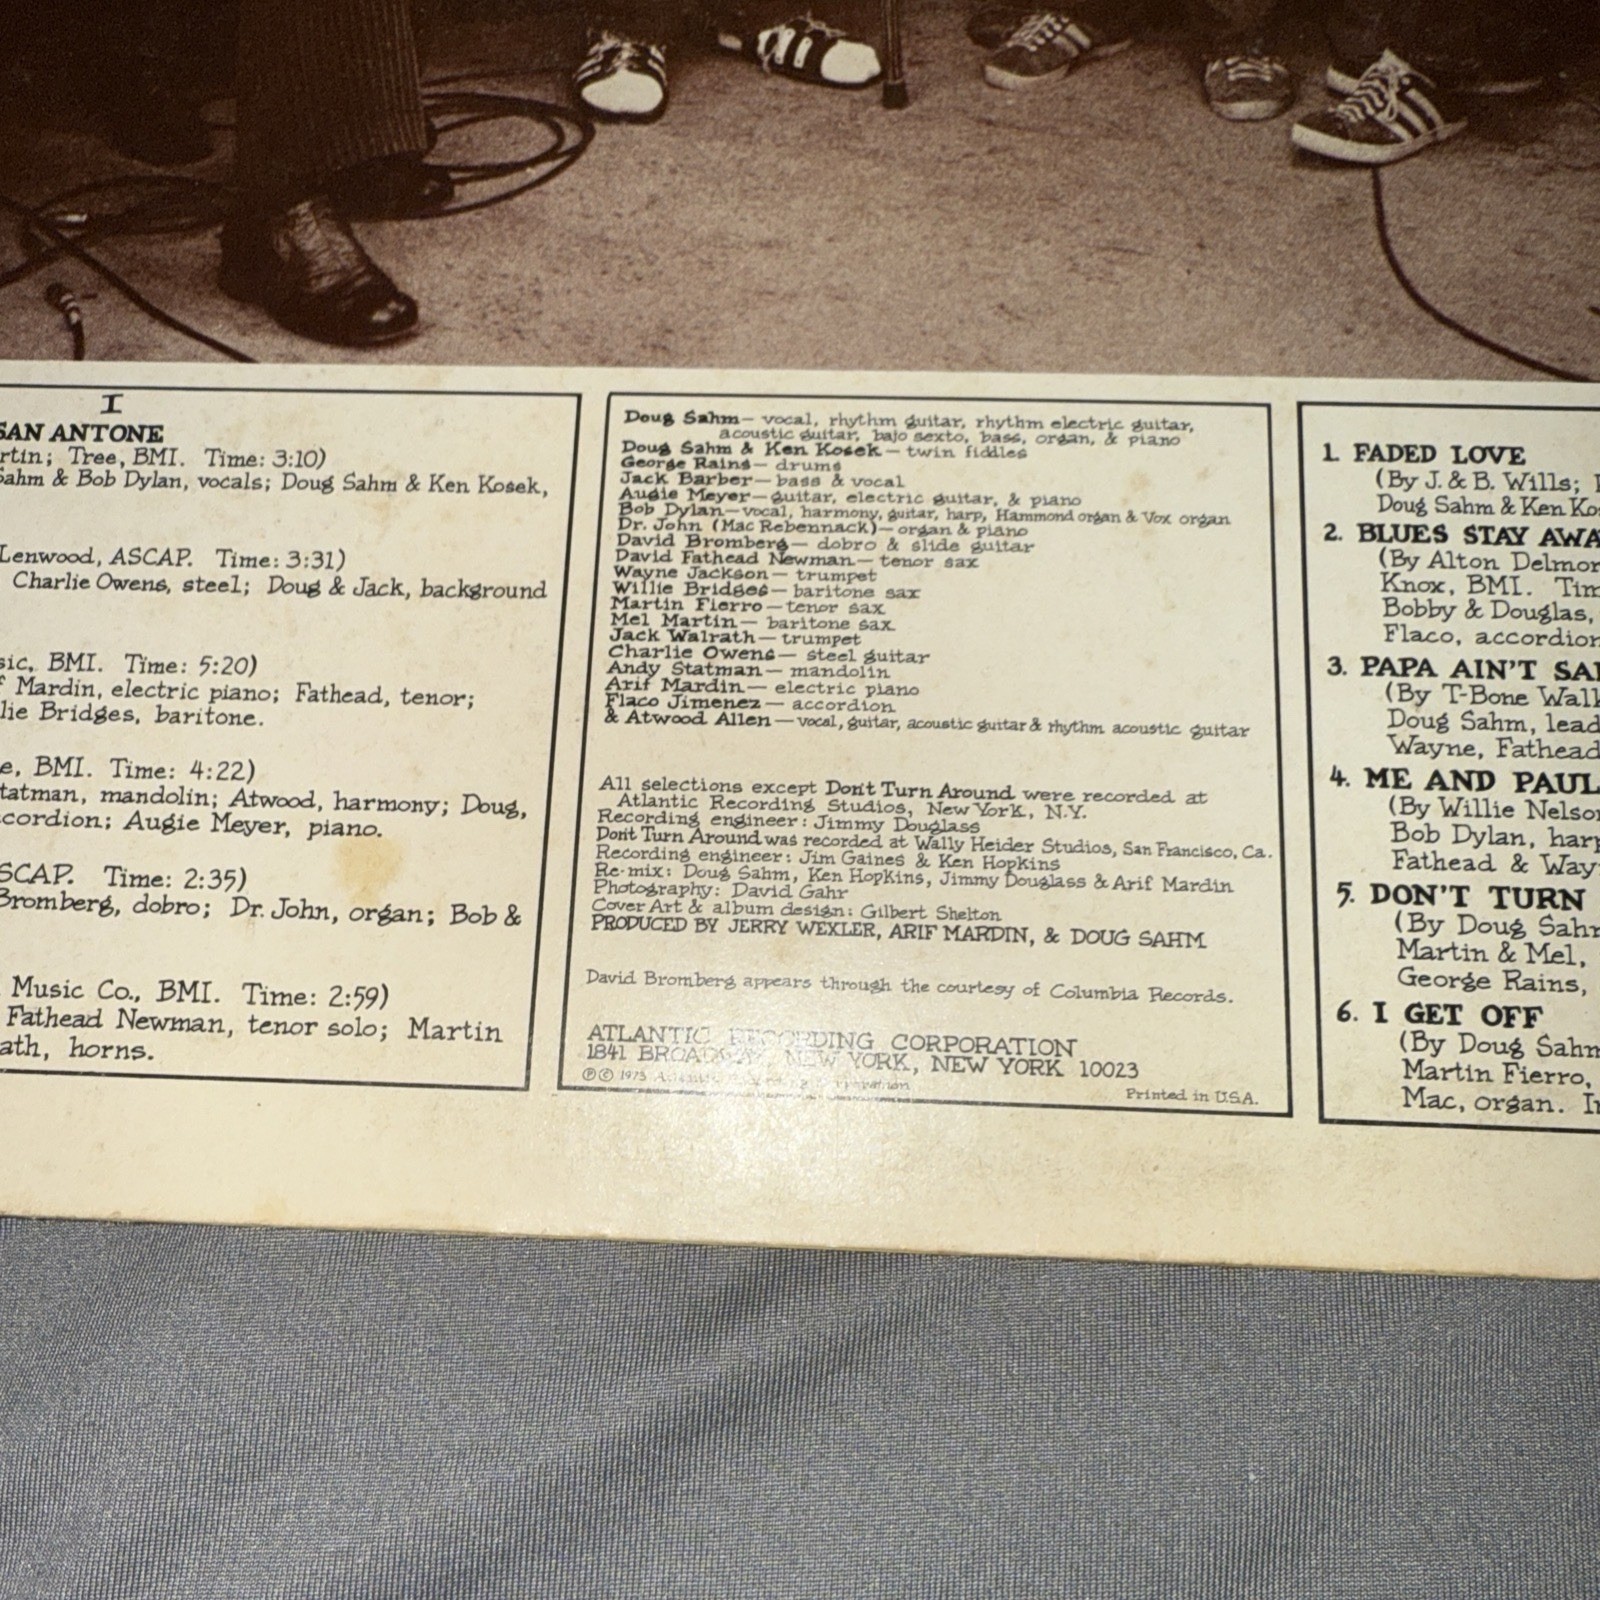 I
SAN ANTONE
rtin; Tree, BMI. Time: 3:10)
Sahm & Bob Dylan, vocals; Doug Sahm & Ken Kosek,
Lenwood, ASCAP. Time: 3:31)
Charlie Owens, steel; Doug & Jack, background
sic, BMI. Time: 5:20)
f Mardin, electric piano; Fathead, tenor;
lie Bridges, baritone.
e, BMI. Time: 4:22)
tatman, mandolin; Atwood, harmony; Doug,
ccordion; Augie Meyer, piano.
SCAP. Time: 2:35)
Bromberg, dobro; Dr. John, organ; Bob &
Music Co., BMI. Time: 2:59)
Fathead Newman, tenor solo; Martin
ath, horns.
Doug Sahm— vocal, rhythm guitar, rhythm electric guitar,
acoustic guitar, bajo sexto, bass, organ, & piano
Doug Sahm & Ken Kosek— twin fiddles
George Rains— drums
Jack Barber— bass & vocal
Augie Meyer— guitar, electric guitar, & piano
Bob Dylan—vocal, harmony, guitar, harp, Hammond organ & Vox organ
Dr. John (Mac Rebennack)— organ & piano
David Bromberg— dobro & slide guitar
David Fathead Newman— tenor sax
Wayne Jackson— trumpet
Willie Bridges— baritone sax
Martin Fierro— tenor sax
Mel Martin— baritone sax
Jack Walrath— trumpet
Charlie Owens— steel guitar
Andy Statman— mandolin
Arif Mardin— electric piano
Flaco Jimenez— accordion
& Atwood Allen— vocal, guitar, acoustic guitar & rhythm acoustic guitar
All selections except Don't Turn Around were recorded at
Atlantic Recording Studios, New York, N.Y.
Recording engineer: Jimmy Douglass
Don't Turn Around was recorded at Wally Heider Studios, San Francisco, Ca.
Recording engineer: Jim Gaines & Ken Hopkins
Re-mix: Doug Sahm, Ken Hopkins, Jimmy Douglass & Arif Mardin
Photography: David Gahr
Cover Art & album design: Gilbert Shelton
PRODUCED BY JERRY WEXLER, ARIF MARDIN, & DOUG SAHM
David Bromberg appears through the courtesy of Columbia Records.
ATLANTIC RECORDING CORPORATION
1841 BROADWAY, NEW YORK, NEW YORK 10023
Ⓟ © 1973
Printed in U.S.A.
1. FADED LOVE
(By J. & B. Wills;
Doug Sahm & Ken Ko
2. BLUES STAY AWA
(By Alton Delmor
Knox, BMI. Tim
Bobby & Douglas,
Flaco, accordion
3. PAPA AIN'T SA
(By T-Bone Walk
Doug Sahm, lead
Wayne, Fathead
4. ME AND PAUL
(By Willie Nelso
Bob Dylan, harp
Fathead & Way
5. DON'T TURN
(By Doug Sahm
Martin & Mel,
George Rains,
6. I GET OFF
(By Doug Sahm
Martin Fierro,
Mac, organ. I